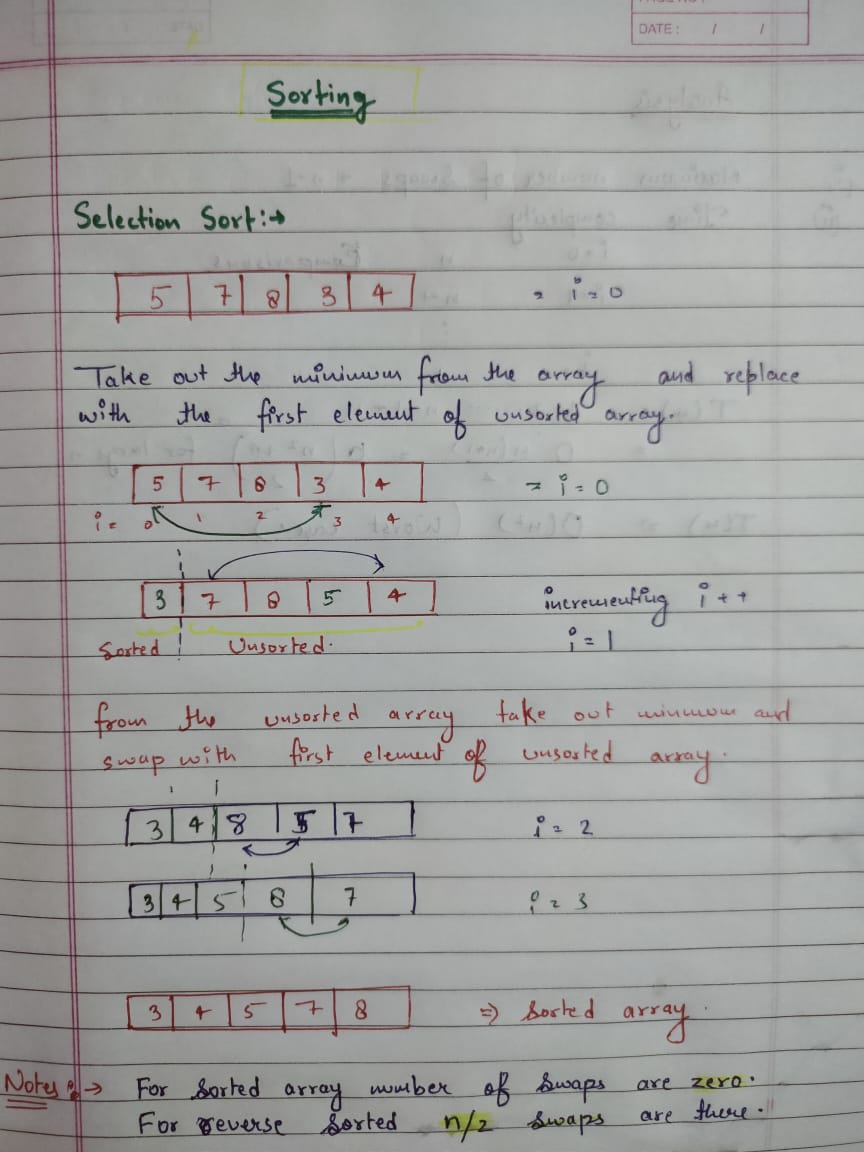 DATE: / /
Sorting
Selection Sort:→
5 7 8 3 4 = i = 0
Take out the minimum from the array and replace
with the first element of unsorted array.
5 7 8 3 4 = i = 0
i = 0 1 2 3 4
3 7 8 5 4 incrementing i++
i = 1
Sorted Unsorted.
from the unsorted array take out minimum and
swap with first element of unsorted array.
3 4 8 5 7 i = 2
3 4 5 8 7 i = 3
3 4 5 7 8 => Sorted array.
Notes:→ For Sorted array number of Swaps are zero.
For reverse Sorted n/2 Swaps are there.